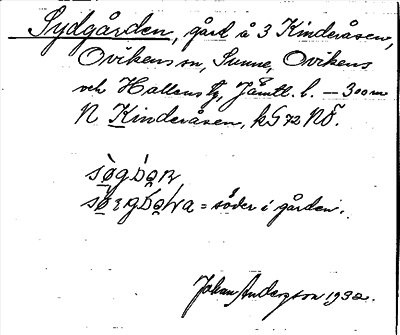 Sydgården, gård å 3 Kinderåsen,
Ovikens sn, Sunne, Ovikens
och Hallens tg, Jämtl. l. — 300 m
N Kinderåsen, kG 72 NÖ.
= söder i gården.
Johan Anderson 1932.